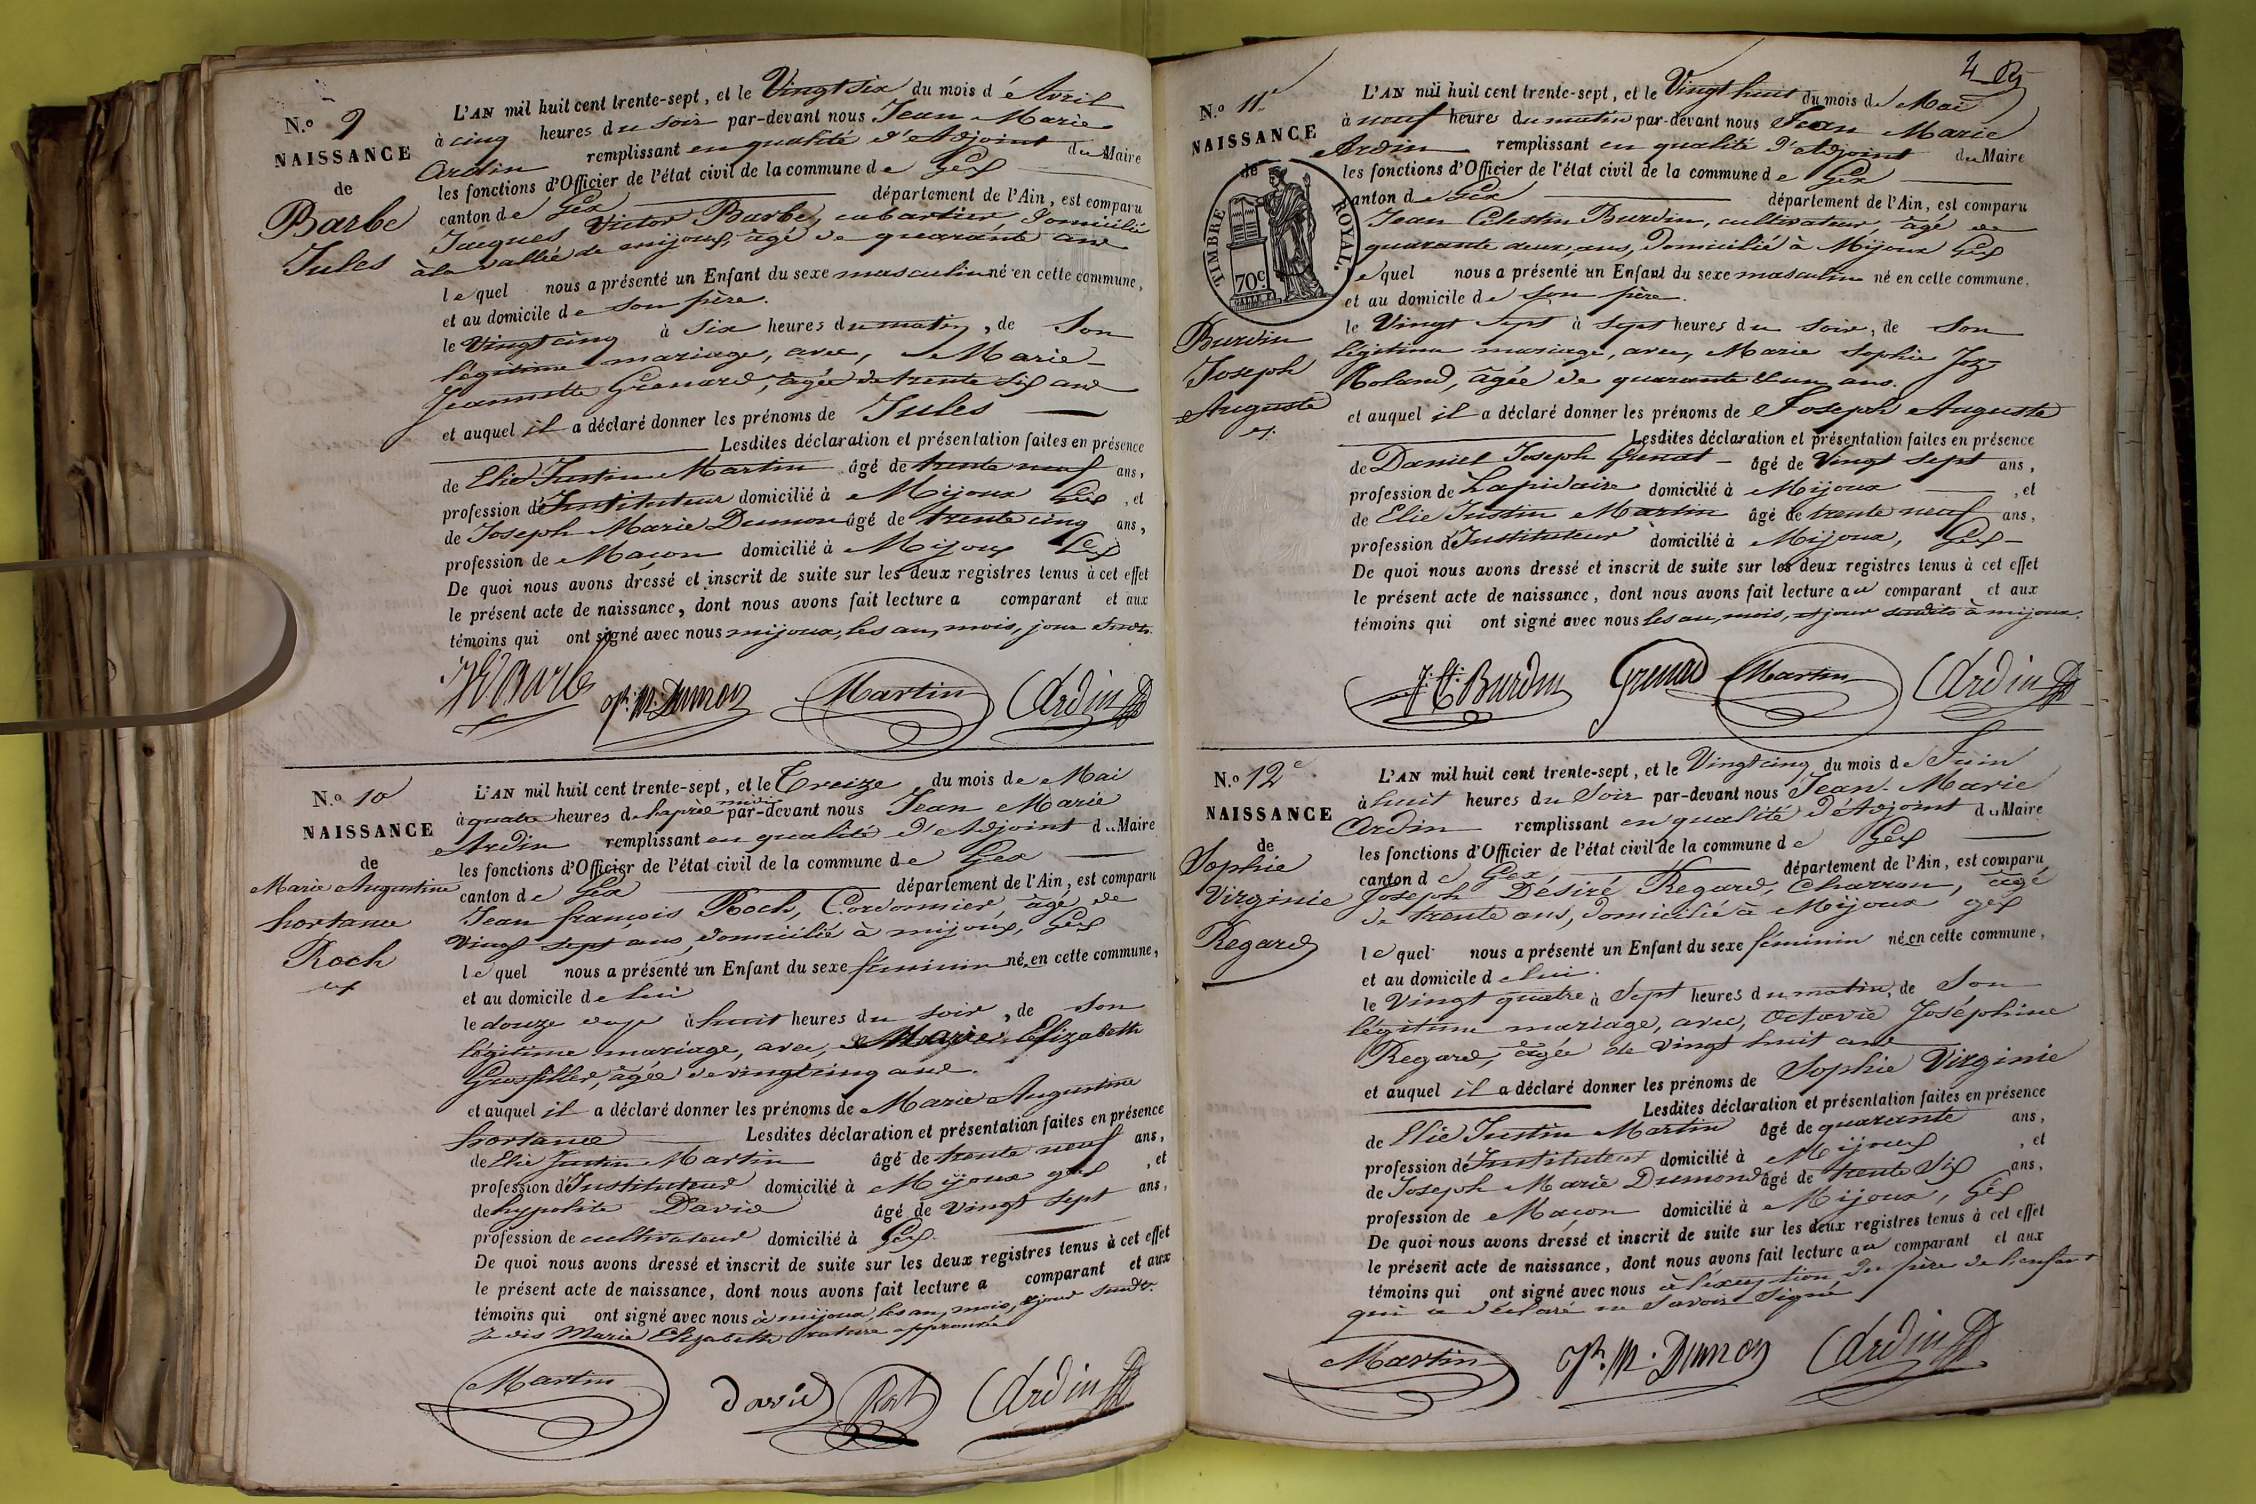 N.o 9
NAISSANCE
de
Barbe
Jules
L'AN mil huit cent trente-sept, et le Vingt six du mois d'Avril
à cinq heures du soir par-devant nous Jean Marie
Ardin remplissant en qualité d'Adjoint du Maire
les fonctions d'Officier de l'état civil de la commune de Gex
canton de Gex département de l'Ain, est comparu
Jacques Victor Barbe, cabartier, domicilié
à la vallée de mijoux, âgé de quarante ans
lequel nous a présenté un Enfant du sexe masculin né en cette commune,
et au domicile de son père.
le Vingt cinq à six heures du matin, de son
légitime mariage, avec, Marie
Jeannette Grenard, âgée de trente six ans
et auquel il a déclaré donner les prénoms de Jules
Lesdites déclaration et présentation faites en présence
de Elie Justin Martin âgé de trente neuf ans,
profession d'Instituteur domicilié à Mijoux Gex, et
de Joseph Marie Dumon âgé de trente cinq ans,
profession de Maçon domicilié à Mijoux Gex
De quoi nous avons dressé et inscrit de suite sur les deux registres tenus à cet effet
le présent acte de naissance, dont nous avons fait lecture a comparant et aux
témoins qui ont signé avec nous mijoux, les an, mois, jour susdts.
JV Barbe Jh. M. Dumon Martin Ardin
N.o 10
NAISSANCE
de
Marie Augustine
hortance
Roch
L'AN mil huit cent trente-sept, et le Treize du mois de Mai
à quatre heures de l'après midi par-devant nous Jean Marie
Ardin remplissant en qualité d'Adjoint du Maire
les fonctions d'Officier de l'état civil de la commune de Gex
canton de Gex département de l'Ain, est comparu
Jean françois Roch, Cordonnier, âgé de
Vingt sept ans, domicilié à mijoux, Gex
lequel nous a présenté un Enfant du sexe féminin né en cette commune,
et au domicile de lui
le douze à huit heures du soir, de son
légitime mariage, avec, Marie Elizabeth
Grosfiller, âgée de vingt cinq ans.
et auquel il a déclaré donner les prénoms de Marie Augustine
hortance Lesdites déclaration et présentation faites en présence
de Elie Justin Martin âgé de trente neuf ans,
profession d'Instituteur domicilié à Mijoux gex, et
de hypolite David âgé de Vingt sept ans,
profession de cultivateur domicilié à Gex.
De quoi nous avons dressé et inscrit de suite sur les deux registres tenus à cet effet
le présent acte de naissance, dont nous avons fait lecture a comparant et aux
témoins qui ont signé avec nous à mijoux, les an, mois, et jour susdts.
Marie Elizabeth rature approuvée
Martin david Roch Ardin
4
N.o 11e
NAISSANCE
de
TIMBRE ROYAL.
70c
Burdin
Joseph
Auguste
L'AN mil huit cent trente-sept, et le Vingt huit du mois de Mai
à neuf heures du matin par-devant nous Jean Marie
Ardin remplissant en qualité d'Adjoint du Maire
les fonctions d'Officier de l'état civil de la commune de Gex
canton de Gex département de l'Ain, est comparu
Jean Célestin Burdin, cultivateur, âgé de
quarante deux, ans, domicilié à Mijoux Gex
lequel nous a présenté un Enfant du sexe masculin né en cette commune,
et au domicile de son père.
le Vingt sept à sept heures du soir, de son
légitime mariage, avec, Marie Sophie Joz
Roland, âgée de quarante et un ans.
et auquel il a déclaré donner les prénoms de Joseph Auguste
Lesdites déclaration et présentation faites en présence
de Daniel Joseph Grenat âgé de Vingt sept ans,
profession de Lapidaire domicilié à Mijoux, et
de Elie Justin Martin âgé de trente neuf ans,
profession d'Instituteur domicilié à Mijoux, Gex
De quoi nous avons dressé et inscrit de suite sur les deux registres tenus à cet effet
le présent acte de naissance, dont nous avons fait lecture au comparant et aux
témoins qui ont signé avec nous les an, mois, et jour susdits à mijoux.
J. Ct. Burdin Grenad Martin Ardin
N.o 12e
NAISSANCE
de
Sophie
Virginie
Regard
L'AN mil huit cent trente-sept, et le Vingt cinq du mois de Juin
à huit heures du Soir par-devant nous Jean Marie
Ardin remplissant en qualité d'Adjoint du Maire
les fonctions d'Officier de l'état civil de la commune de Gex
canton de Gex, département de l'Ain, est comparu
Joseph Désiré Regard, Charron, âgé
de trente ans, domicilié à Mijoux gex
lequel nous a présenté un Enfant du sexe féminin né en cette commune,
et au domicile de lui.
le Vingt quatre à Sept heures du matin, de Son
légitime mariage, avec, Octavie Joséphine
Regard, âgée de vingt huit ans
et auquel il a déclaré donner les prénoms de Sophie Virginie
Lesdites déclaration et présentation faites en présence
de Elie Justin Martin âgé de quarante ans,
profession d'Instituteur domicilié à Mijoux, et
de Joseph Marie Dumond âgé de trente Six ans,
profession de Maçon domicilié à Mijoux, Gex
De quoi nous avons dressé et inscrit de suite sur les deux registres tenus à cet effet
le présent acte de naissance, dont nous avons fait lecture au comparant et aux
témoins qui ont signé avec nous à l'exception, du père de l'enfant
qui a déclaré ne Savoir Signé
Martin Jh. M. Dumon Ardin